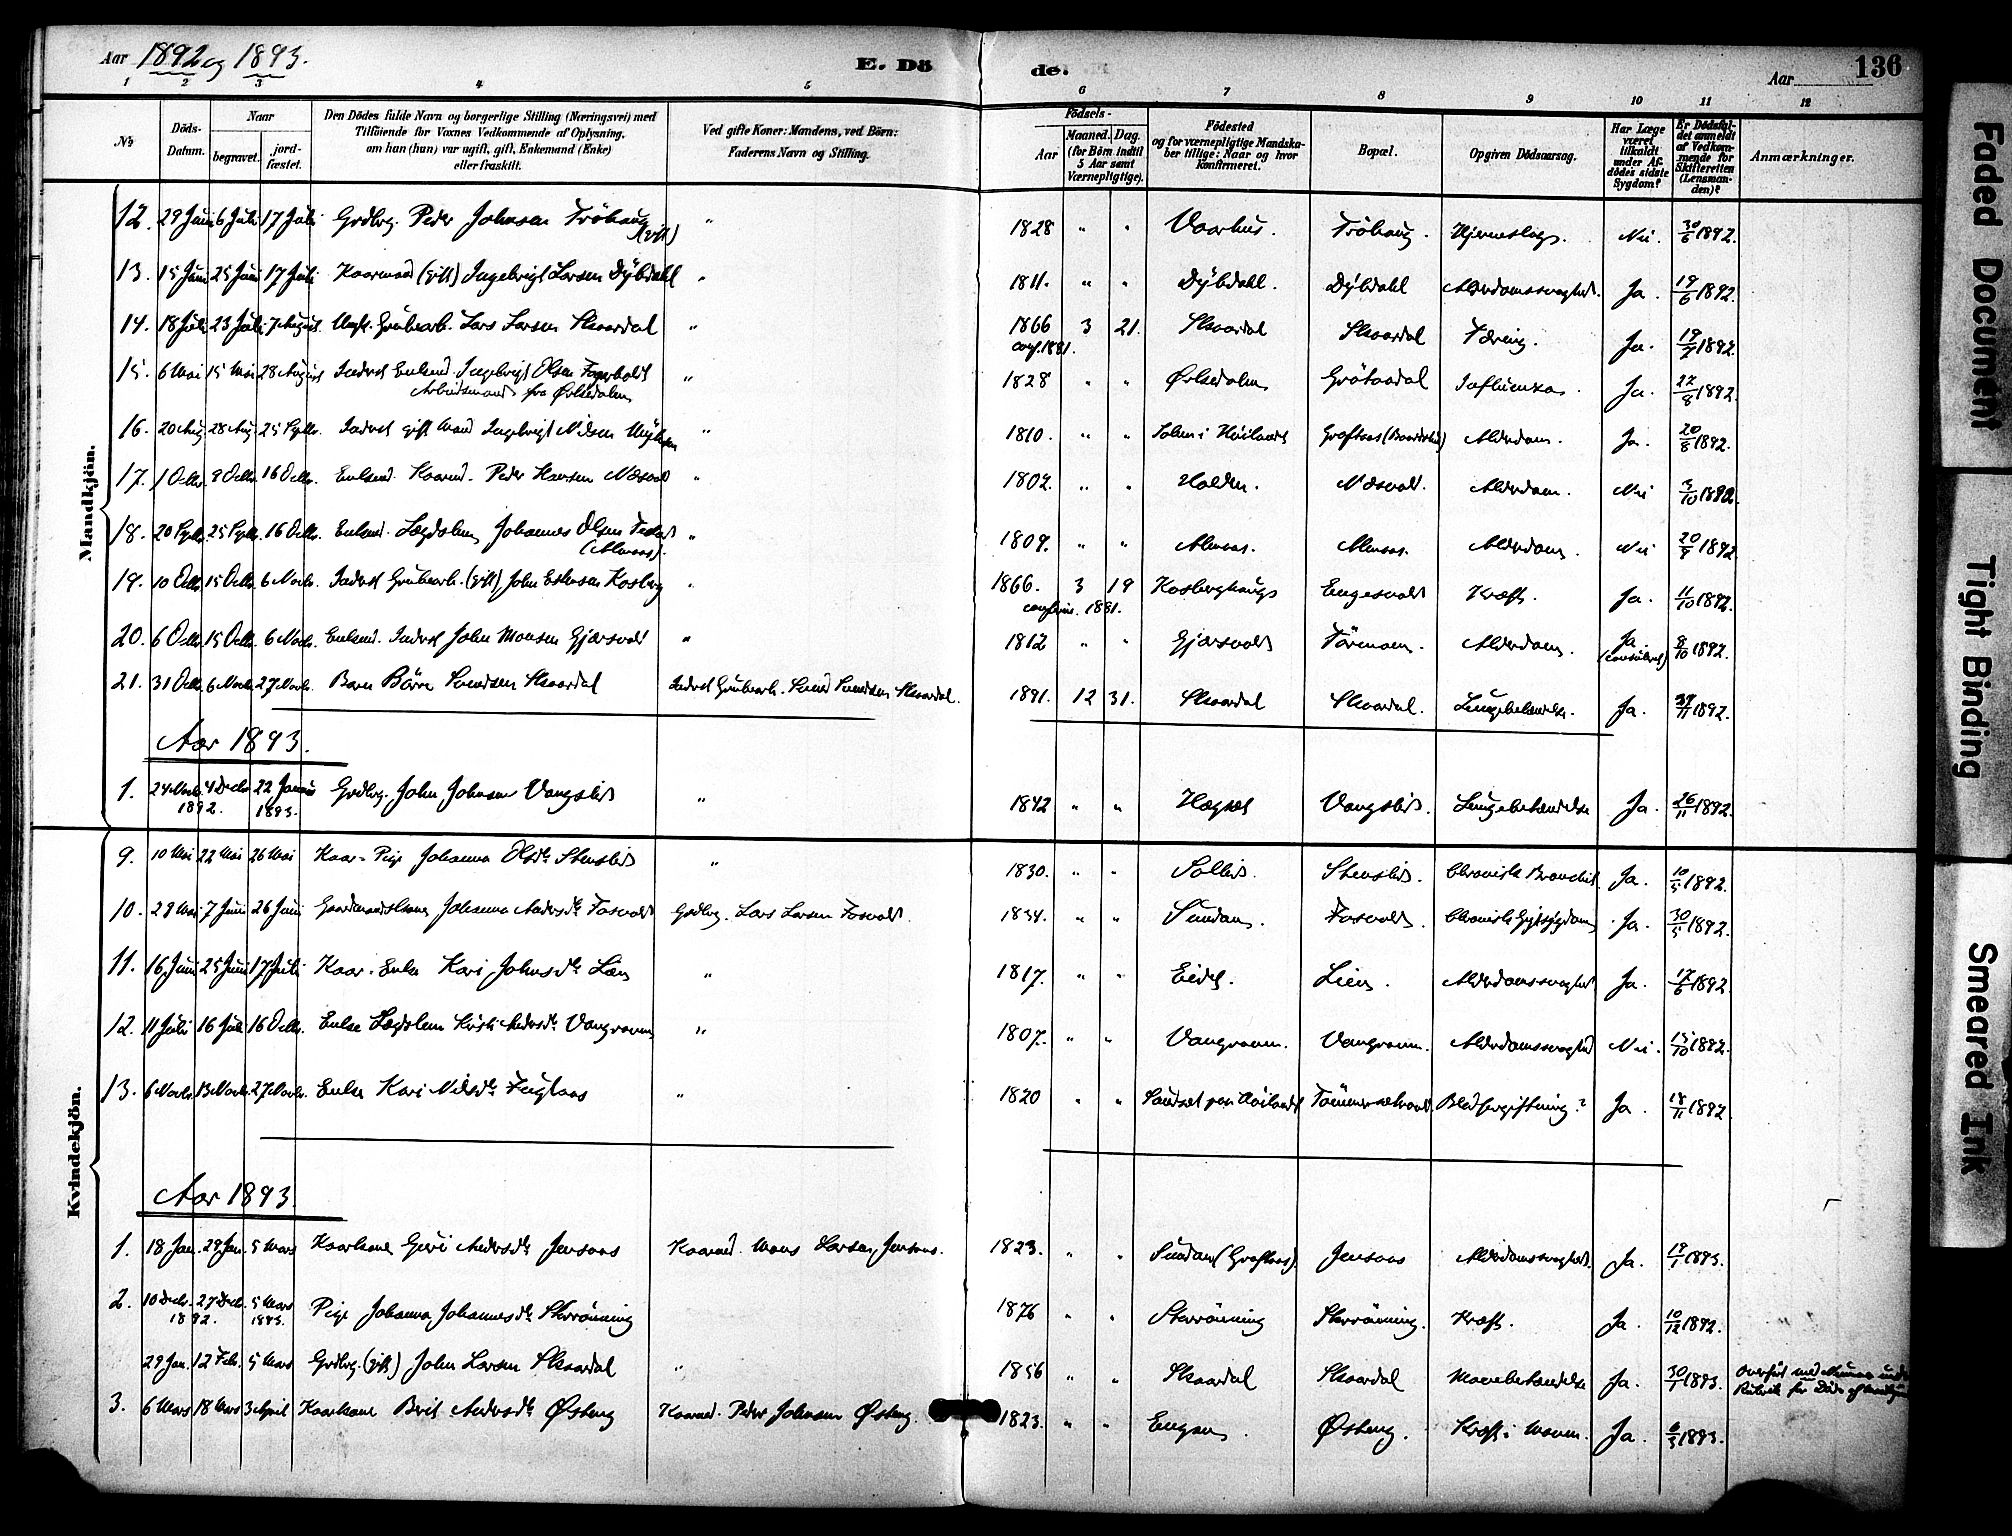 Aar 1892 og 1893.
E. Dö
de.
Aar
136
1 2 3 4 5 6 7 8 9 10 11 12
№
Döds-Datum.
Naar
begravet.
jord-fæstet.
Den Dödes fulde Navn og borgerlige Stilling (Næringsvei) med
Tilföiende for Voxnes Vedkommende af Oplysning,
om han (hun) var ugift, gift, Enkemand (Enke)
eller fraskilt.
Ved gifte Koner: Mandens, ved Börn:
Faderens Navn og Stilling.
Födsels-
Aar
Maaned. Dag.
(for Börn indtil
5 Aar samt
Værnepligtige).
Födested
og for værnepligtige Mandska-
ber tillige: Naar og hvor
konfirmeret.
Bopæl.
Opgiven Dödsaarsag.
Har Læge
været
tilkaldt
under Af-
dödes sidste
Sygdom?
Er Dödsfal-
det anmeldt
af Vedkom-
mende for
Skifteretten
(Lensman-
den)?
Anmærkninger.
Mandkjön.
12. 29 Juni 6 Juli 17 Juli Grdbrg. Peder Johnsen Tröhaug (gift) " 1828 " " Vaarhus. Tröhaug. Hjerneslag. Nei. 30/6 1892.
13. 15 Juni 25 Juni 17 Juli Kaarmand (gift) Ingebrigt Larsen Dybdahl " 1811. " " Dybdahl. Dybdahl Alderdomssvaghed. Ja. 19/6 1892.
14. 18 Juli 23 Juli 7 August. Ungk. Grubearb. Lars Larsen Skaardal " 1866 3 21. Skaardal Skaardal Tæring. Ja. 19/7 1892.
conf. 1881.
15. 6 Mai 15 Mai 28 August Inderst Enkmd. Ingebrigt Olsen " 1828 " " Grötaadal Influenza. Ja. 22/8 1892.
Arbeidsmand fra
16. 20 Aug. 28 Aug. 25 Sptbr. Inderst gift Mand Ingebrigt Nilsen " 1810. " " Alderdom. Ja. 20/8 1892.
17. 1 Octbr. 9 Octbr. 16 Octbr. Enkmd. Kaarmd. Peder Hansen Næsvold " 1802. " " Halden. Næsvold. Alderdom. Nei 3/10 1892.
18. 20 Sptbr. 25 Sptbr. 16 Octbr. Enkmd. Lægdslem Johannes Olsen " 1809. " " Almaas. Almaas. Alderdom. Nei 20/9 1892
(Almaas).
19. 10 Octbr. 15 Octbr. 6 Novbr. Inderst Grubearb. (gift) John Estensen Kosberg " 1866. 3 19 Kosberghaugs Engesvold Kræft. Ja. 11/10 1892.
confirm. 1881.
20. 6 Octbr. 15 Octbr. 6 Novbr. Enkmd. Inderst John Monsen Gjærsvold " 1812 " " Gjærsvold Törmoen. Alderdom. Ja 8/10 1892.
(consuleret)
21. 31 Octbr. 6 Novbr. 27 Novbr. Barn Börre Svendsen Skaardal Inderst Grubearb. Svend Svendsen Skaardal. 1891. 12 31. Skaardal Skaardal. Lungebetændelse. Ja. 1892.
Aar 1893.
1. 24 Novbr. 4 Decbr. 22 Januar Grdbrg. John Johnsen Vangslid " 1842 " " Hægset Vangslid. Lungebetændelse Ja. 26/11 1892.
1892. 1893.
Kvindekjön.
9. 10 Mai 22 Mai 26 Mai Kaar-Pige Johanna Olsdtr. Stenslid " 1830. " " Sollid. Stenslid. Chronisk Bronchit Ja. 10/5 1892.
10. 29 Mai 7 Juni 26 Juni Gaardmandskone Johanna Andersdtr. Fosvold Grdbrg. Lars Larsen Fosvold. 1834. " " Sundan. Fosvold. Chronisk Gigtsygdom Ja. 30/5 1892.
11. 16 Juni 25 Juni 17 Juli Kaar-Enke Kari Johnsdtr. Lien " 1817. " " Eidet. Lien. Alderdomssvaghed Ja. 17/6 1892.
12. 11 Juli 16 Juli 16 Octbr. Enke Lægdslem Kirsti Andersdtr. Vangrønn " 1807. " " Vangrønn. Vangrønn. Alderdomssvaghed Nei. 15/10 1892.
13. 6 Novbr. 13 Novbr. 27 Novbr. Enke Kari Nilsdtr. Fuglaas " 1820 " " Blodforgiftning? Ja. 18/11 1892.
Aar 1893
1. 18 Jan. 29 Jan. 5 Mars Kaarkone Guri Andersdtr. Jensaas Kaarmd. Mons Larsen Jensaas. 1823. " " Sundan (Graftaas). Jensaas Alderdomssvaghed. Ja. 19/1 1893.
2. 10 Decbr. 27 Decb. 5 Mars Pige Johanna Johannesdtr. Skjerrönning 1876 " " Skjerrönning Skjerrönning. Kræft. Ja. 10/12 1892.
1892. 1893.
29 Jan. 12 Feb. 5 Mars Grdbrg. (gift) John Larsen Skaardal " 1856 " " Skaardal Skaardal Mavebetændelse Ja. 30/1 1893. Overført med Numer under
Rubrik for Döde af Mandkjön
3. 6 Mars 18 Mars 3 April Kaarkone Brit Andersdtr. Østeng Kaarmd. Peder Johnsen Østeng. 1823. " " Engan. Østeng. Kræft i Maven. Ja. 6/3 1893.
Faded Document
Tight Binding
Smeared Ink